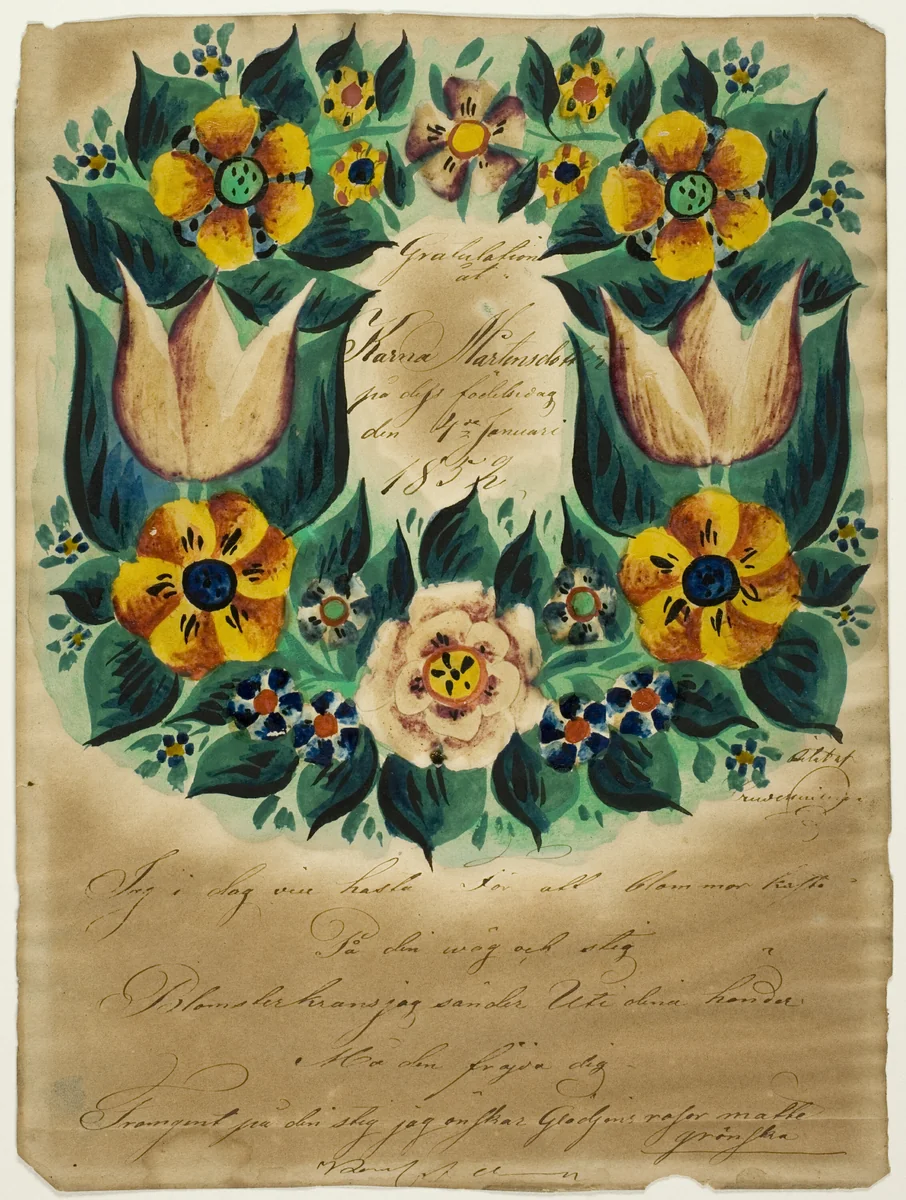 Gratulation
åt
Karna Mårtensdotter
på dess födelsedag
den 4de Januari
1852
Jag i dag vill hasta För att blommor kasta
På din wäg och stig
Blomsterkrans jag sänder Uti dina händer
Må den fröjda dig
Framgent på din stig jag önskar Glädjens rosor matte
grönska